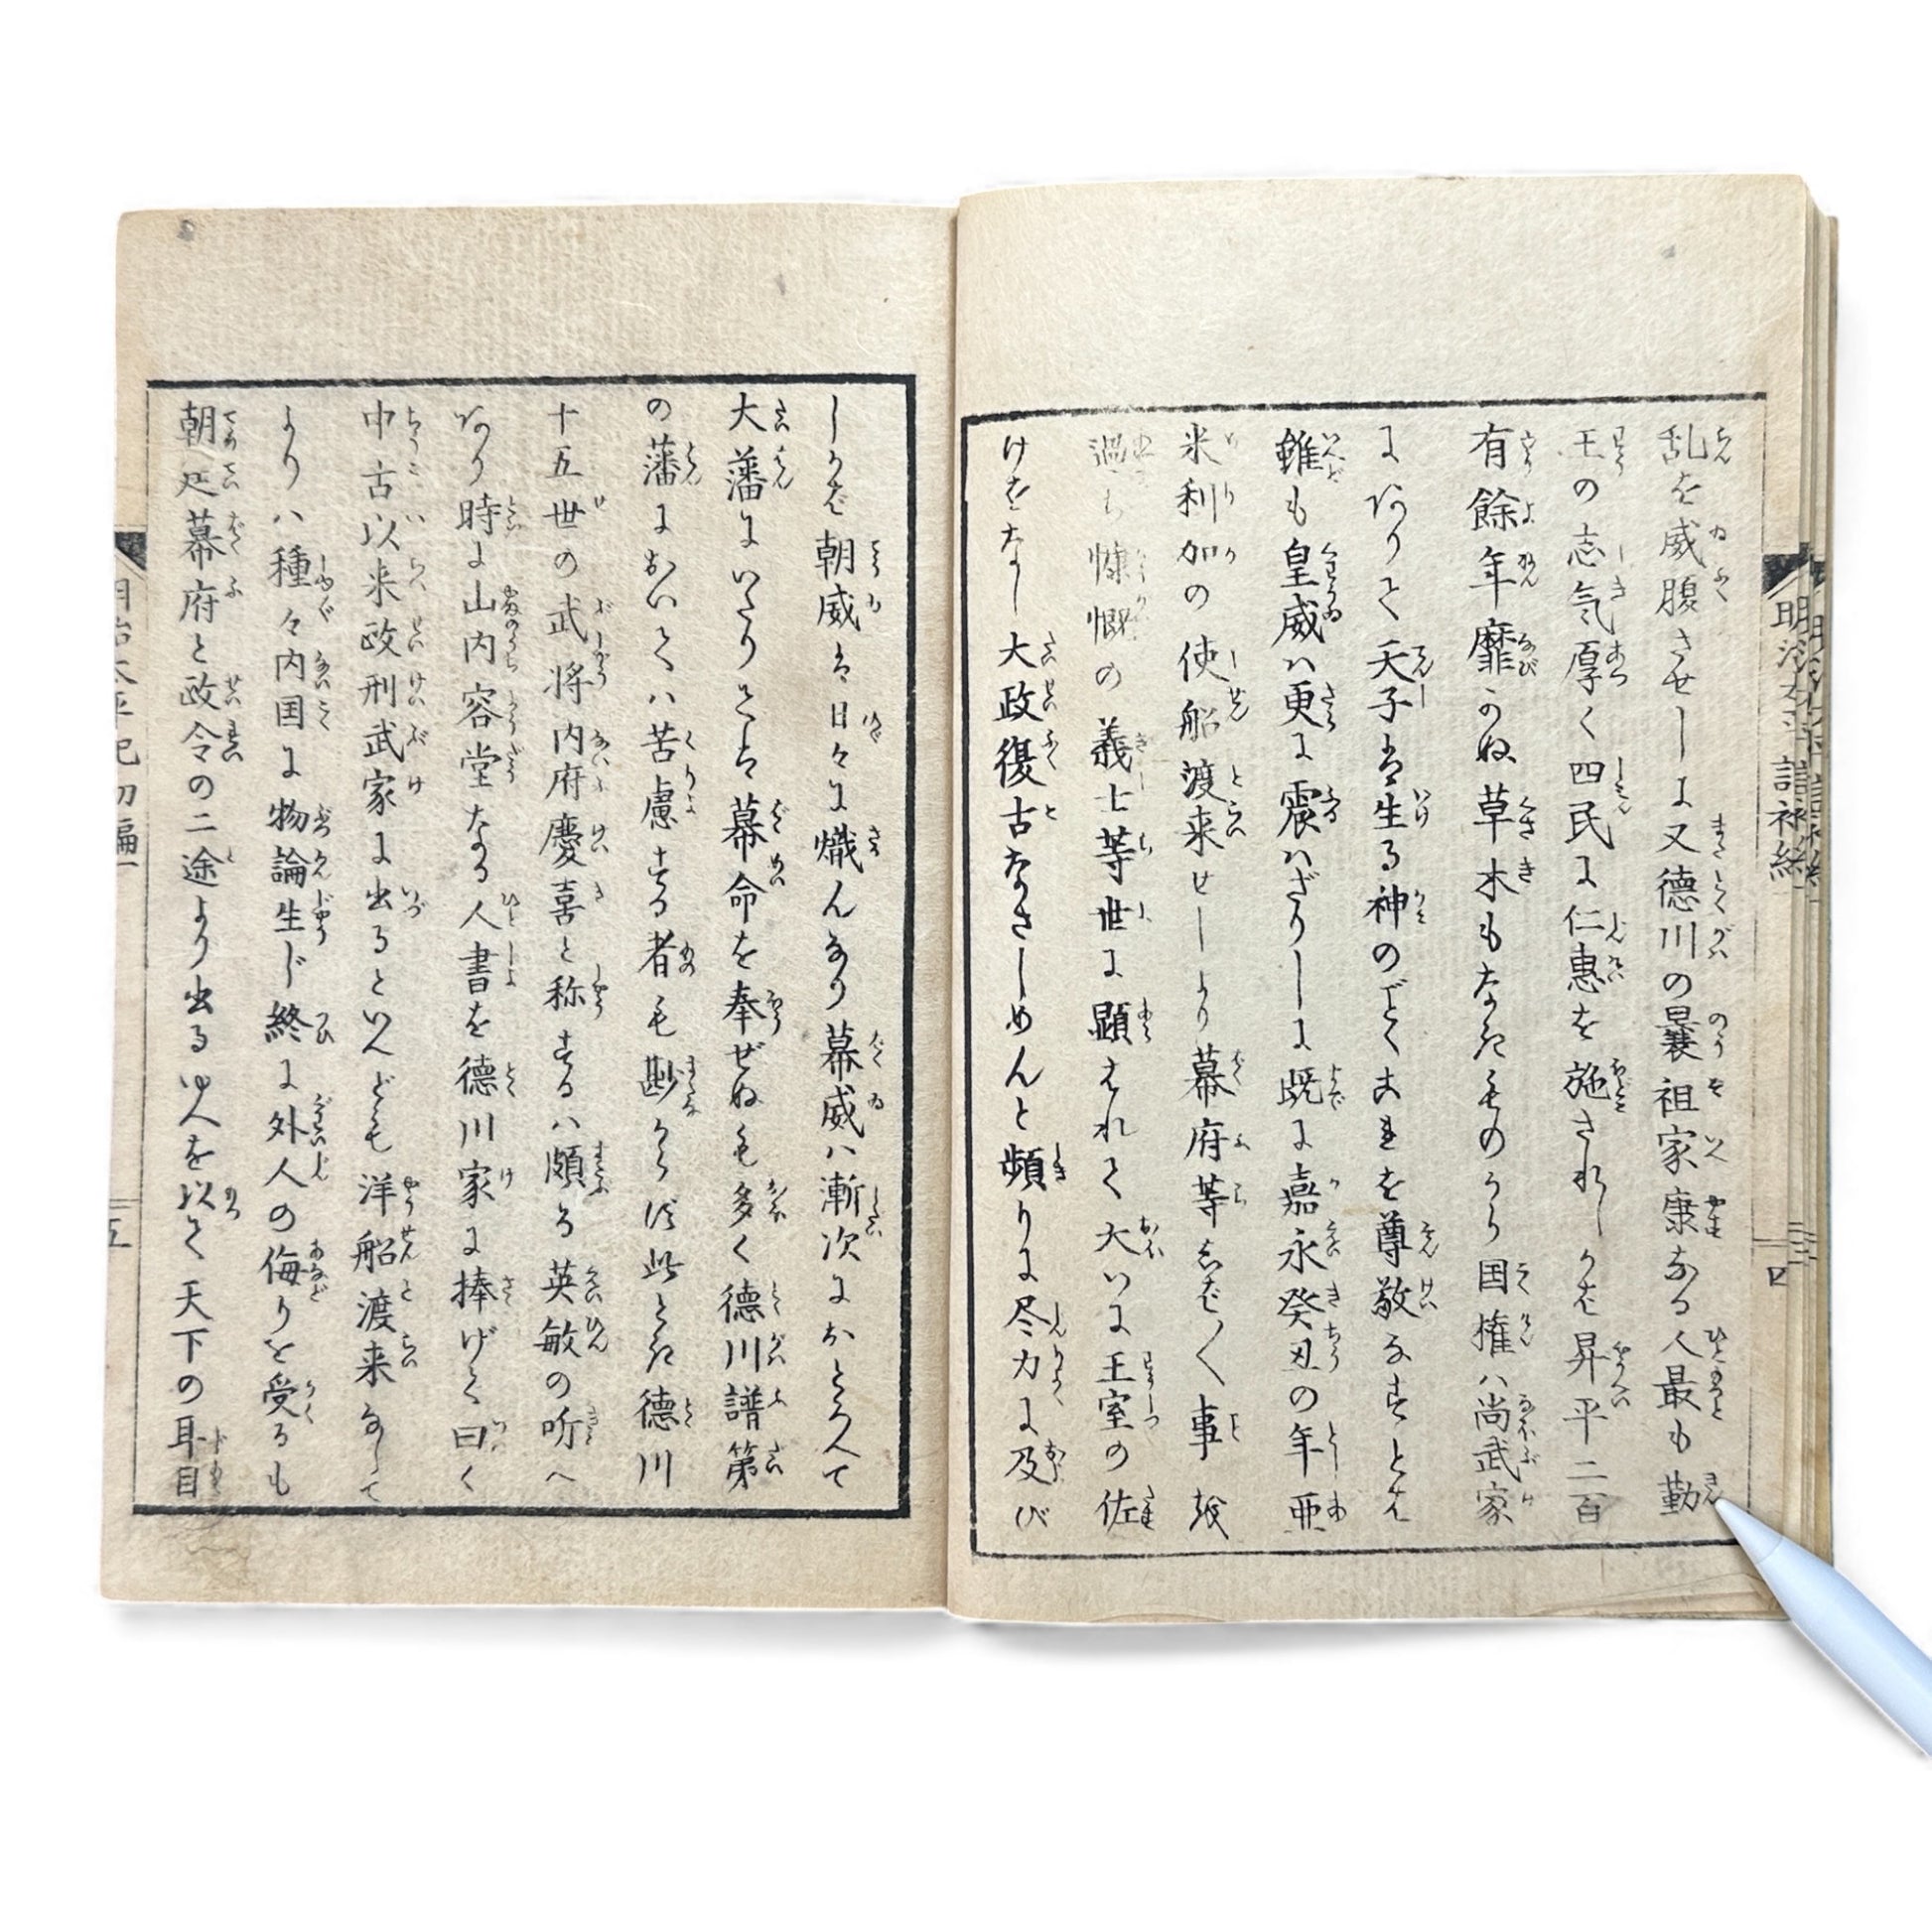 乱を威腹させしに又徳川の曩祖家康なる人最も勤
王の志気厚く四民に仁恵を施されしかば昇平二百
有餘年靡かぬ草木もなきものから国権ハ尚武家
にありて天子は生る神のごとくあまを尊敬なすとは
雖も皇威ハ更に震ハざりしに既に嘉永癸丑の年亜
米利加の使船渡来せしより幕府等しば〳〵事
慷慨の義士等世に顕はれて大いに王室の佐
けをなし大政復古なさしめんと頻りに尽力に及び
しかば朝威は日々に熾んなり幕威ハ漸次におとろへて
大藩にいたりては幕命を奉ぜぬも多く徳川譜第
の藩においてハ苦慮する者も尠からず此とき徳川
十五世の武将内府慶喜と称するハ頗る英敏の听へ
あり時に山内容堂なる人書を徳川家に捧げて曰く
中古以来政刑武家に出るといへども洋船渡来なして
よりハ種々内国に物論生じ終に外人の侮りを受るも
朝廷幕府と政令の二途より出るゆへを以て天下の耳目